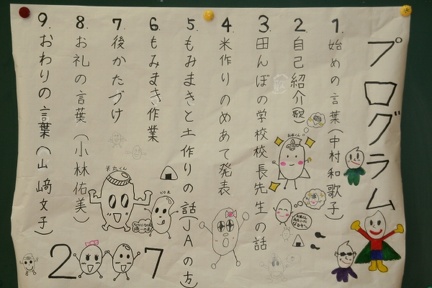 プログラム
1. 始めの言葉(中村和歌子)
2. 自己紹介(配)
3. 田んぼの学校校長先生の話
4. 米作りのめあて発表
5. もみまきと土作りの話(JAの方)
6. もみまき作業
7. 後かたづけ
8. お礼の言葉(小林佑美)
9. おわりの言葉(山﨑文子)